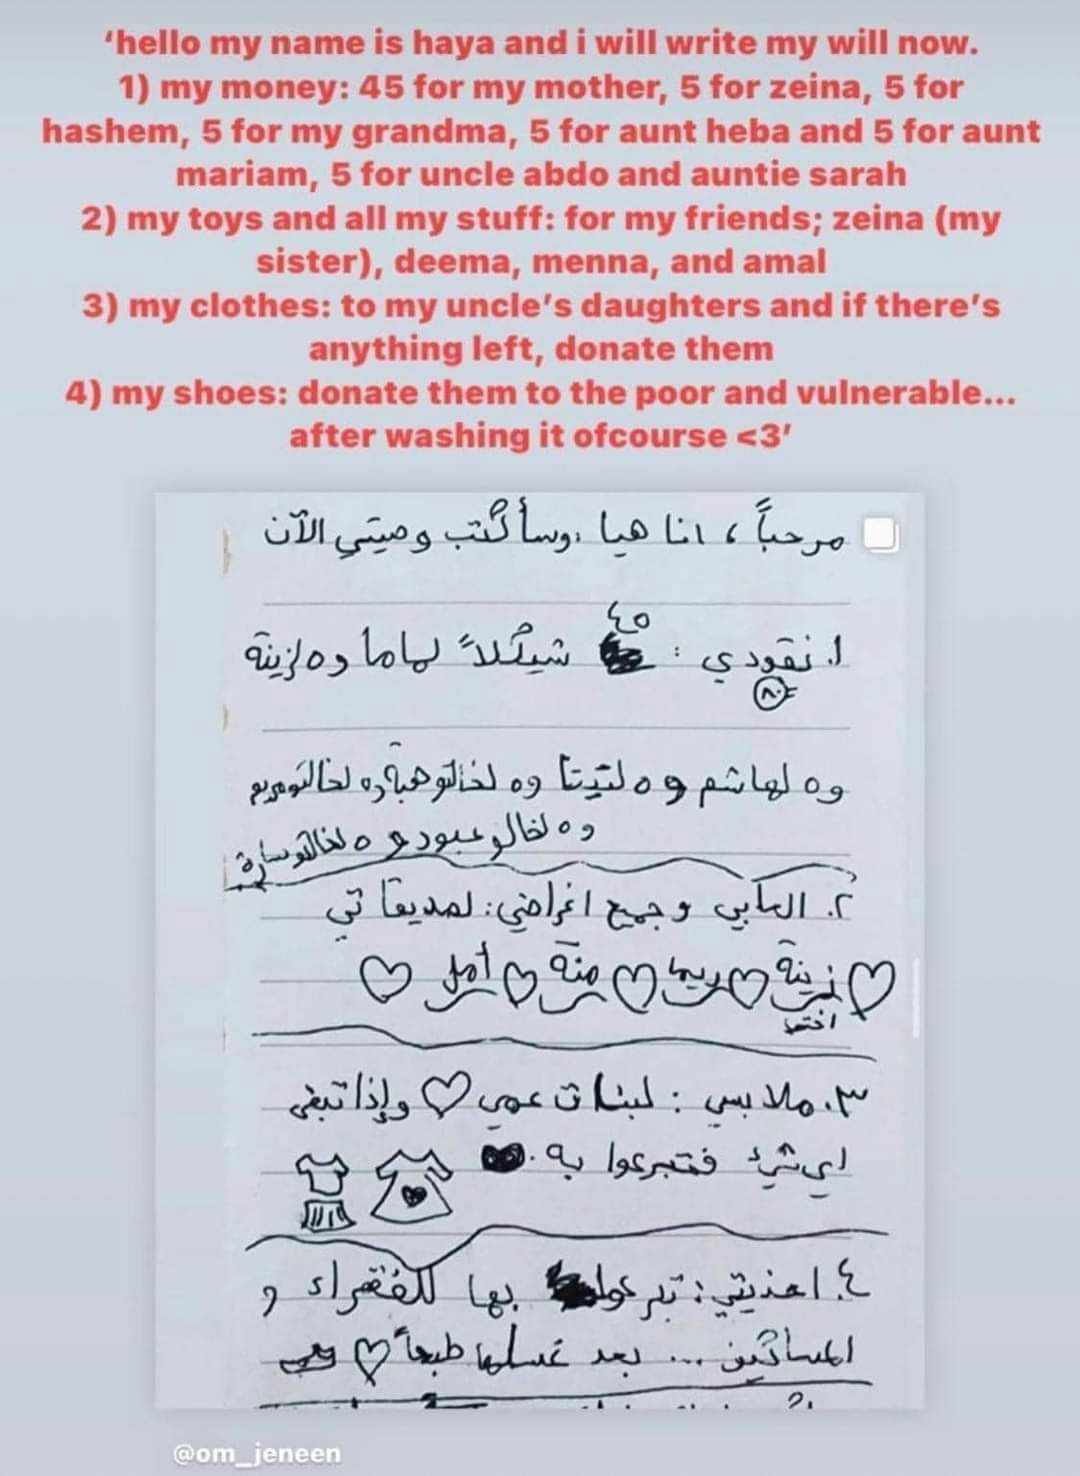 ‘hello my name is haya and i will write my will now.
1) my money: 45 for my mother, 5 for zeina, 5 for
hashem, 5 for my grandma, 5 for aunt heba and 5 for aunt
mariam, 5 for uncle abdo and auntie sarah
2) my toys and all my stuff: for my friends; zeina (my
sister), deema, menna, and amal
3) my clothes: to my uncle’s daughters and if there’s
anything left, donate them
4) my shoes: donate them to the poor and vulnerable...
after washing it ofcourse <3’
مرحباً ، انا هيا ، وسأكتب وصيتي الآن
٤٥
١. نقودي : شيكلاً لماما و ٥ لزينة
٨٠
و ٥ لهاشم و ٥ لتيتا و ٥ لخالتو هبة و ٥ لخالتو مريم
و ٥ لخالو عبود و ٥ لخالتو سارة
٢. العابي و جميع اغراضي : لصديقاتي
♡ زينة ♡ ريما ♡ منة ♡ أمل ♡
اختي
٣. ملابسي : لبنات عمي ♡ وإذا تبقى
اي شيئ فتبرعوا به .
٤. احذيتي : تبرعوا بها للفقراء و
المساكين ... بعد غسلها طبعاً ♡
@om_jeneen